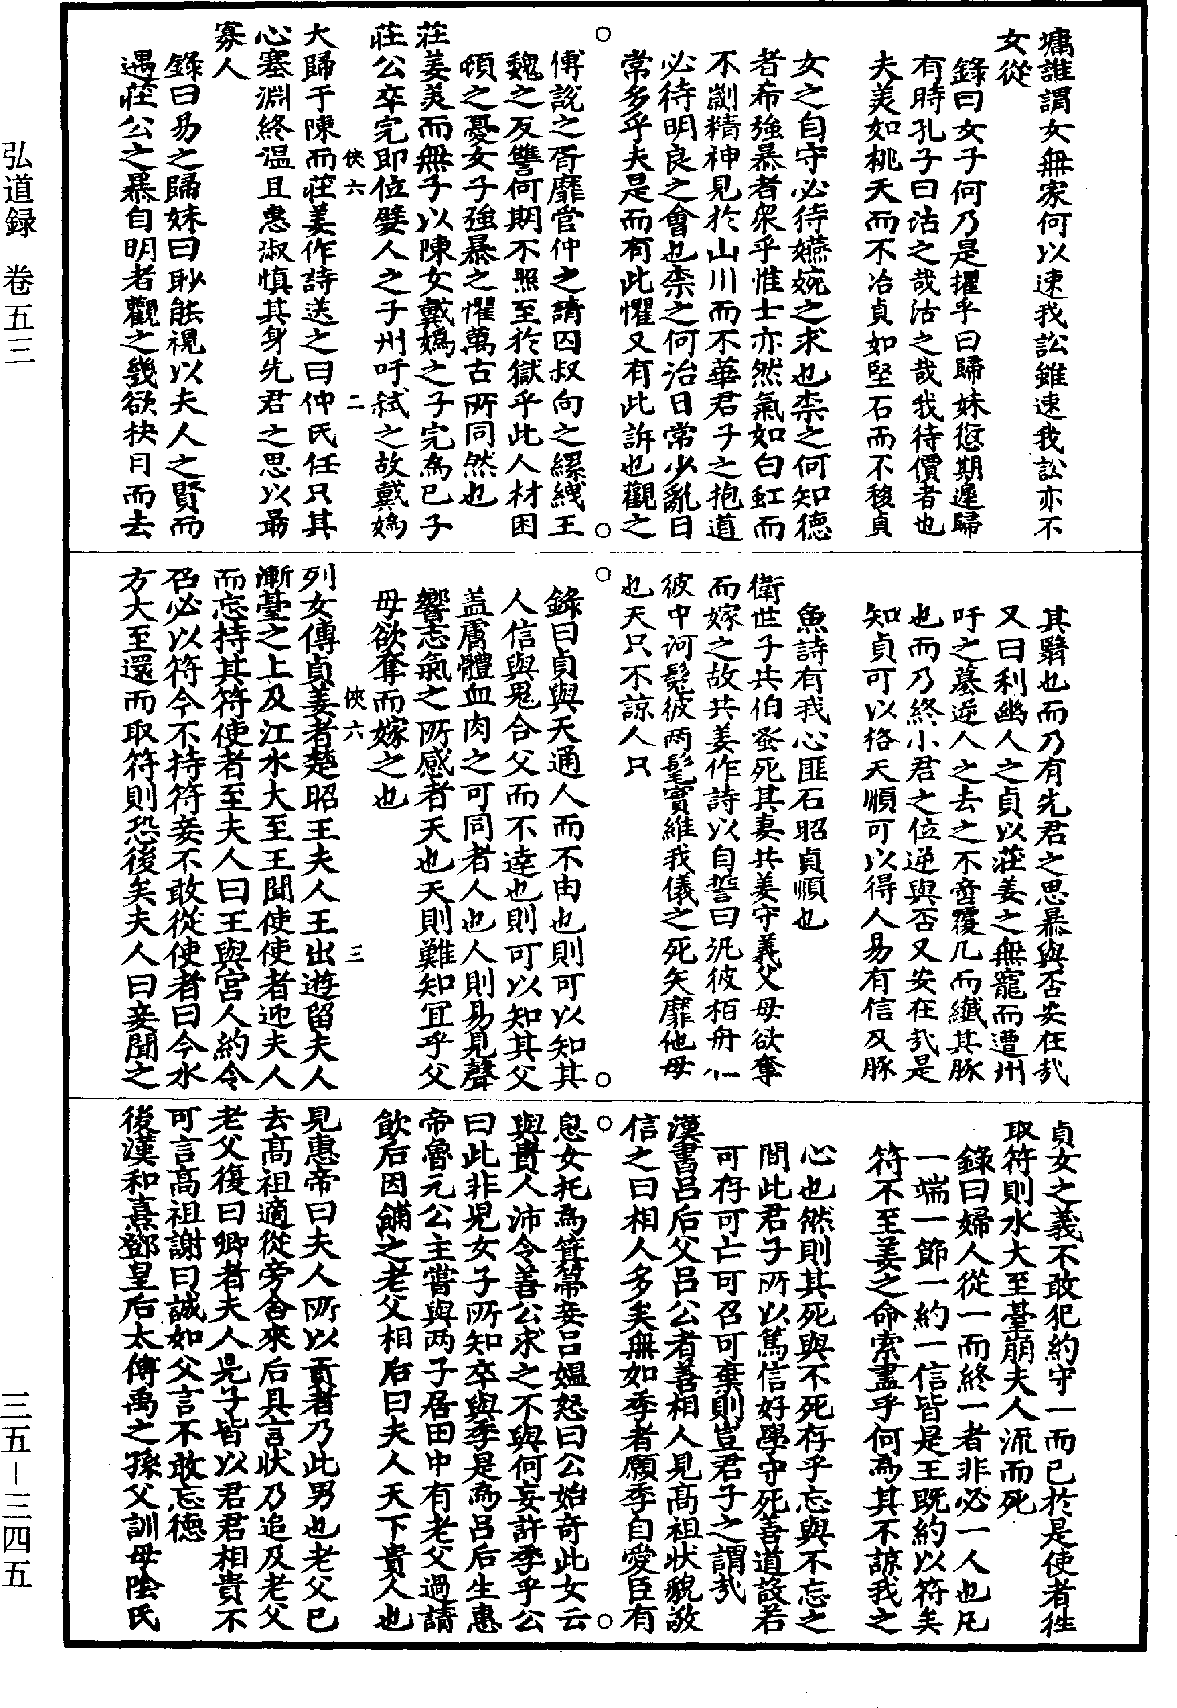 墉誰謂女無家何以速我訟雖速我訟亦不
女從
錄曰女子何乃是擢乎曰歸妹愆期遲歸
有時孔子曰沽之哉沽之哉我待價者也
夫美如桃夭而不冶貞如堅石而不稜貞
女之自守必待嬿婉之求也柰之何知德
者希強暴者衆乎惟士亦然氣如白虹而
不劌精神見於山川而不華君子之抱道
必待明良之會也柰之何治日常少亂日
常多乎夫是而有此懼又有此訴也觀之
傅說之胥靡管仲之請囚叔向之縲絏王
魏之反讐何期不照至於獄乎此人材困
頓之憂女子強暴之懼萬古所同然也
莊姜美而無子以陳女戴媯之子完為已子
莊公卒完即位嬖人之子州吁弒之故戴媯
大歸于陳而莊姜作詩送之曰仲氏任只其
心塞淵終溫且惠淑慎其身先君之思以勗
寡人
錄曰易之歸妹曰眇能視以夫人之賢而
遇莊公之暴自明者觀之幾欲抉目而去
俠六
二
其驂也而乃有先君之思暴與否安在哉
又曰利幽人之貞以莊姜之無寵而遭州
吁之墓逆人之去之不啻覆几而纖其豚
也而乃終小君之位逆與否又安在哉是
知貞可以格天順可以得人易有信及豚
魚詩有我心匪石昭貞順也
衛世子共伯蚤死其妻共姜守義父母欲奪
而嫁之故共姜作詩以自誓曰汎彼栢舟在
彼中河髧彼两髦實維我儀之死矢靡他母
也天只不諒人只
錄曰貞與天通人而不由也則可以知其
人信與鬼合父而不達也則可以知其父
蓋膚體血肉之可同者人也人則易見聲
響志氣之所感者天也天則難知冝乎父
母欲奪而嫁之也
列女傳貞姜者楚昭王夫人王出遊留夫人
漸臺之上及江水大至王聞使使者迎夫人
而忘持其符使者至夫人曰王與宮人約令
召必以符今不持符妾不敢從使者曰今水
方大至還而取符則恐後矣夫人曰妾聞之
俠六
三
貞女之義不敢犯約守一而已於是使者徃
取符則水大至臺崩夫人流而死
錄曰婦人從一而終一者非必一人也凡
一端一節一約一信皆是王既約以符矣
符不至姜之命索盡乎何為其不諒我之
心也然則其死與不死存乎忘與不忘之
間此君子所以篤信好學守死善道設若
可存可亡可召可棄則豈君子之謂哉
漢書呂后父呂公者善相人見髙祖狀貌敬
信之曰相人多矣無如季者願季自愛臣有
息女托為箕箒妾呂媼怒曰公始奇此女云
與貴人沛令善公求之不與何妄許季乎公
曰此非兒女子所知卒與季是為呂后生惠
帝魯元公主嘗與两子居田中有老父過請
飲后因餔之老父相后曰夫人天下貴人也
見惠帝曰夫人所以貴者乃此男也老父已
去髙祖適從旁舍來后具言狀乃追及老父
老父復曰卿者夫人兒子皆以君君相貴不
可言髙祖謝曰誠如父言不敢忘德
後漢和熹鄧皇后太傅禹之孫父訓母陰氏
弘道録 卷五三
三五－三四五